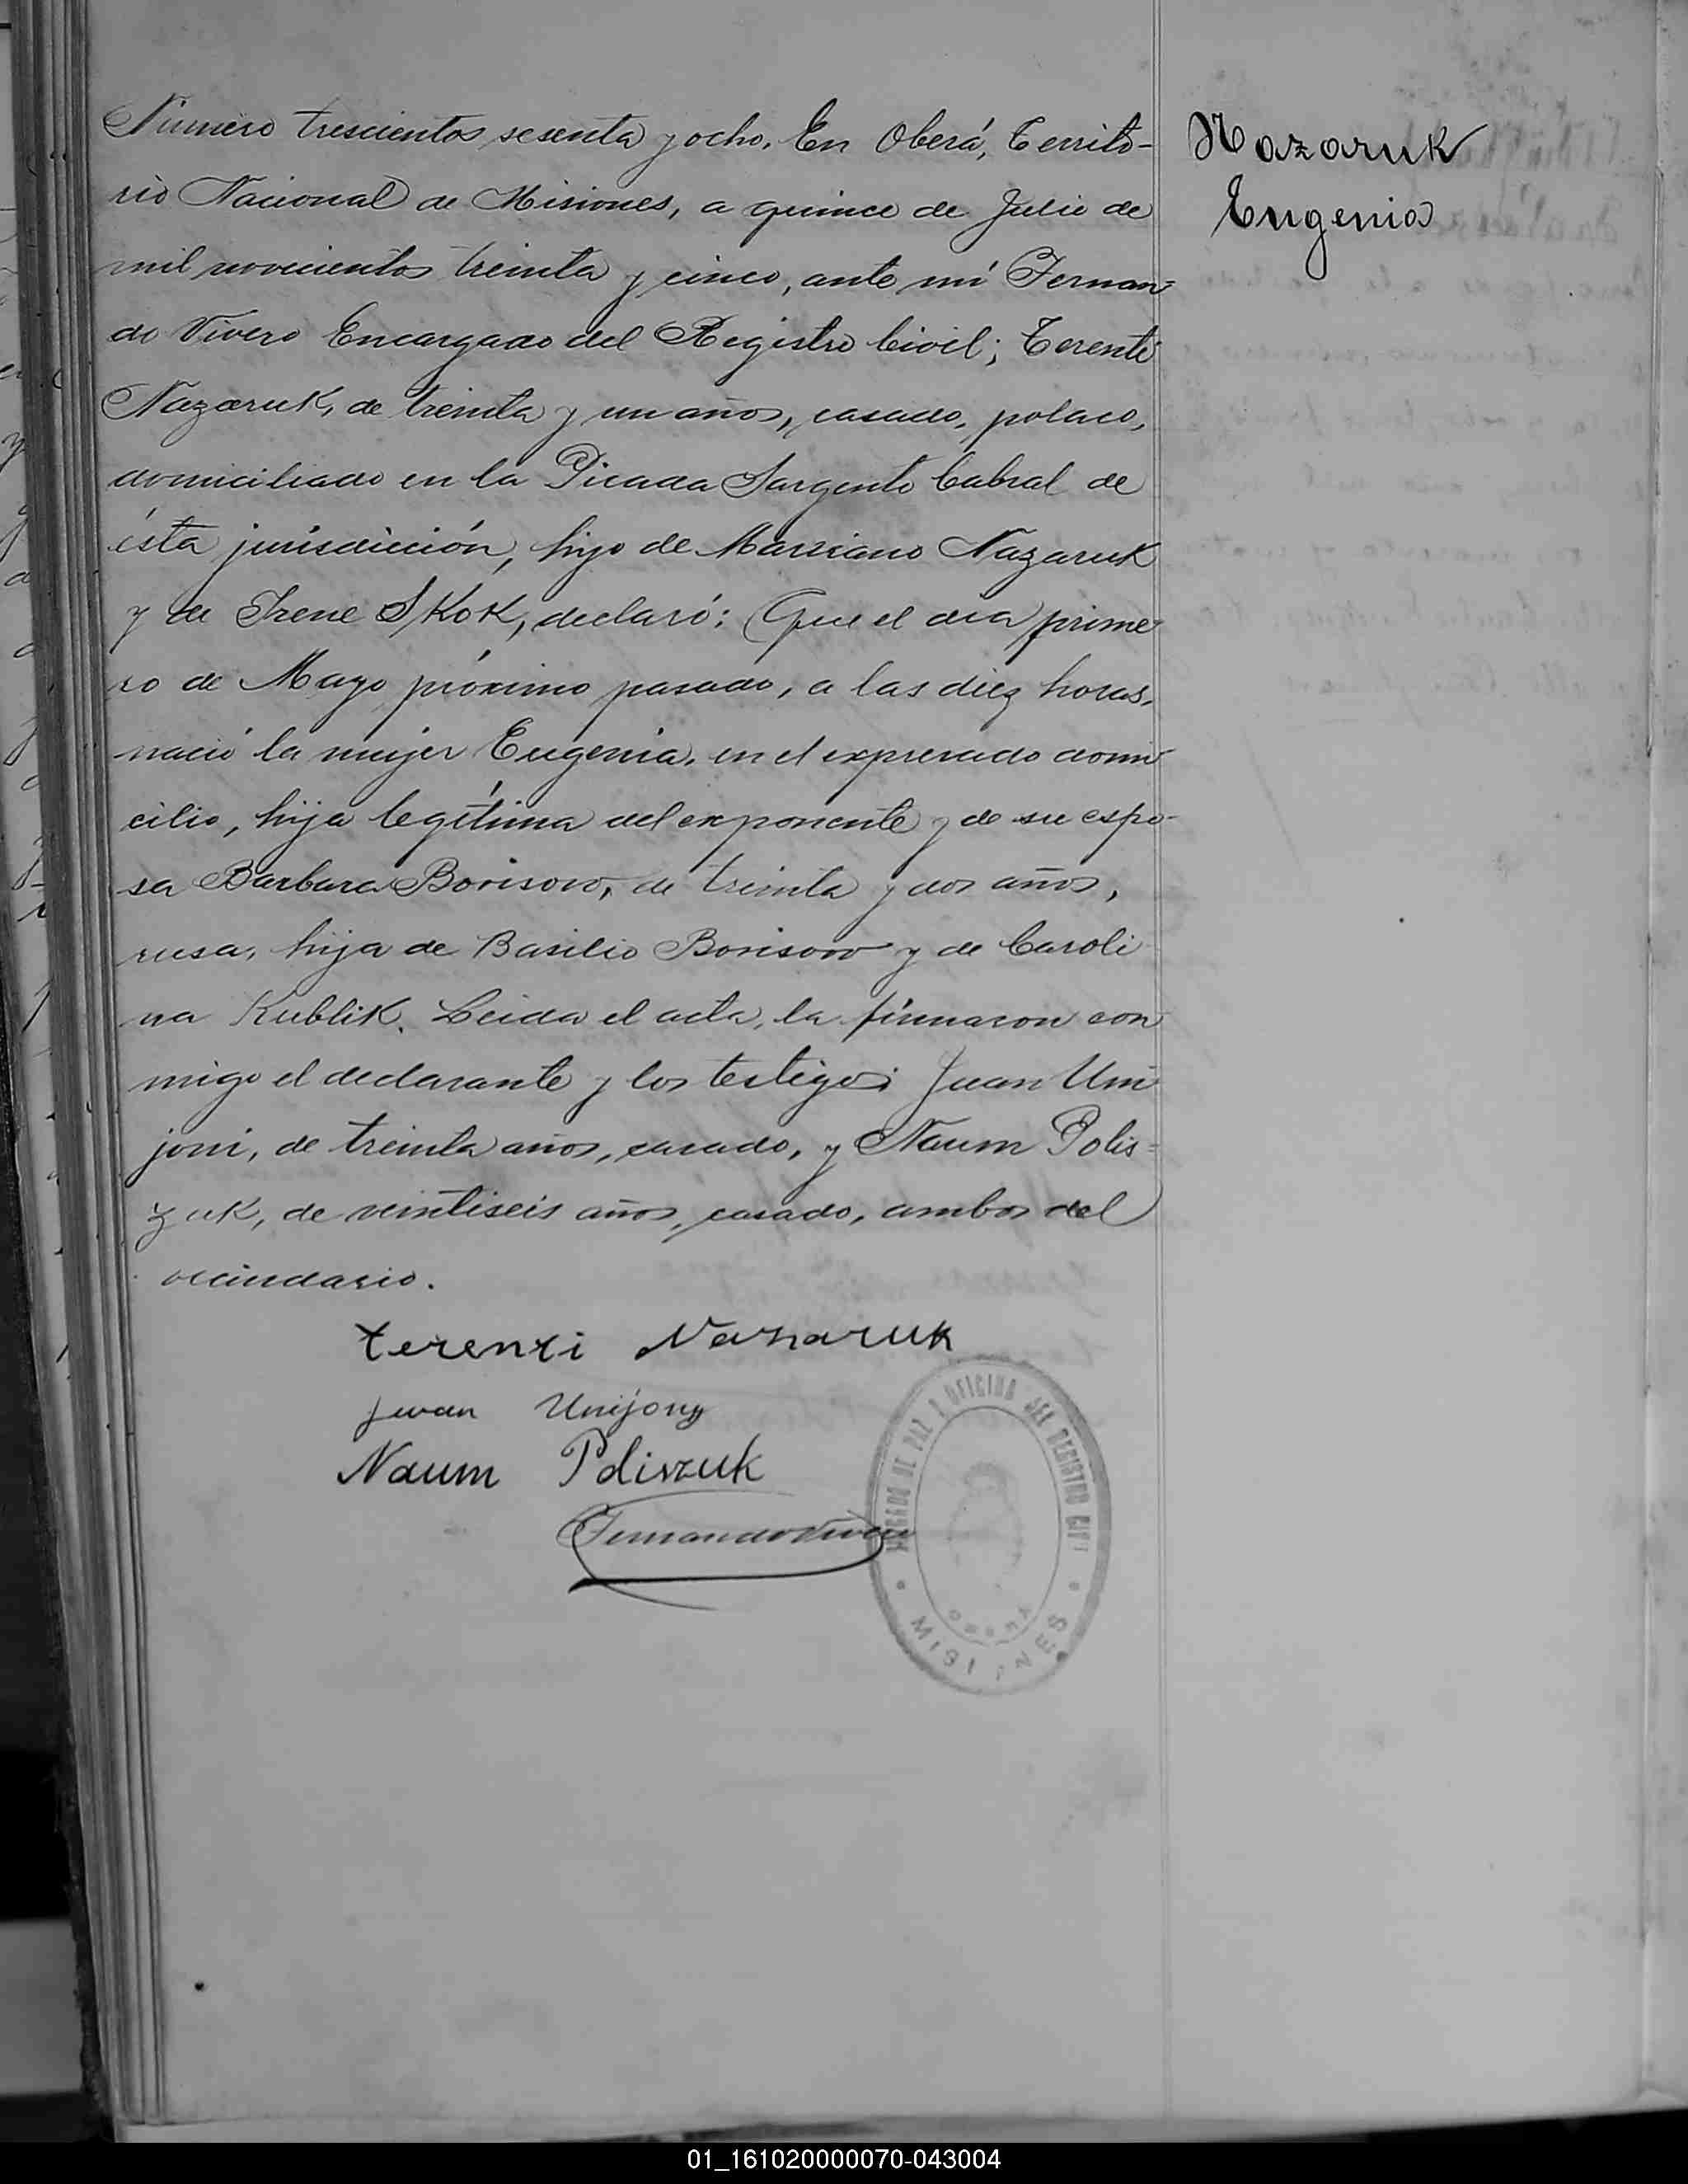 Número trescientos sesenta y ocho. En Oberá, Territo-
rio Nacional de Misiones, a quince de Julio de
mil novecientos treinta y cinco, ante mí Fernan-
do Vivero Encargado del Registro Civil; Terenti
Nazaruk, de treinta y un años, casado, polaco,
domiciliado en la Picada Sargento Cabral de
ésta jurisdicción, hijo de Marziano Nazaruk
y de Irene Skok, declaró: Que el día prime
ro de Mayo próximo pasado, a las diez horas,
nació la mujer Eugenia, en el expresado domi
cilio, hija legítima del exponente y de su espo-
sa Barbara Borisow, de treinta y dos años,
rusa, hija de Basilio Borisow y de Caroli
na Kublik. Leida el acta, la firmaron con
migo el declarante y los testigos: Juan Uni
joni, de treinta años, casado, y Naum Polis-
zuk, de veintiseis años, casado, ambos del
vecindario.
Nazaruk
Eugenia
terenti Nazaruk
Juan Unijony
Naum Poliszuk
Fernando Vivero
JUZGADO DE PAZ Y OFICINA DEL REGISTRO CIVIL
OBERÁ
MISIONES
01_161020000070-043004